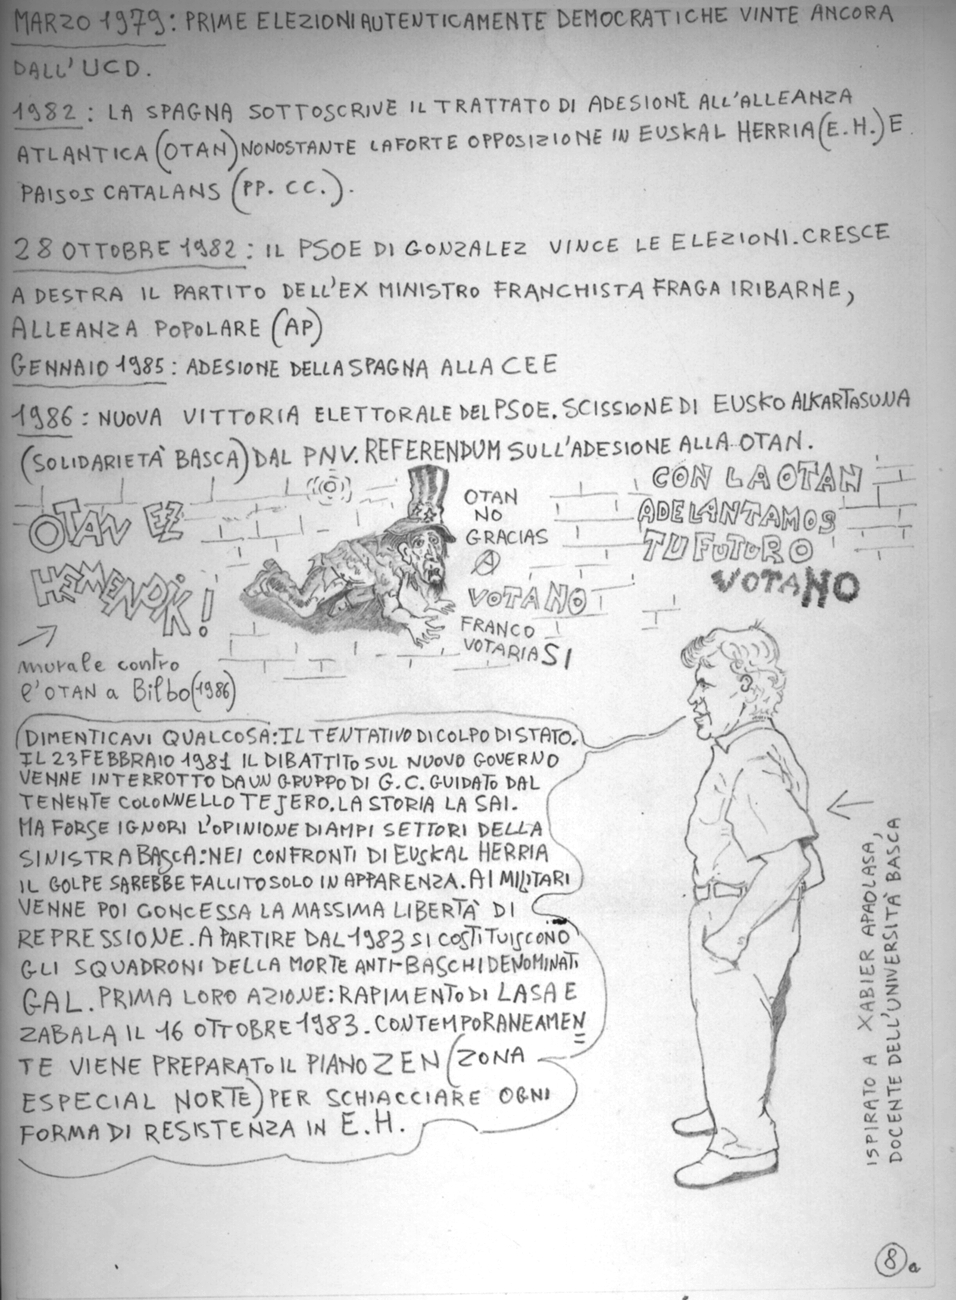 MARZO 1979: PRIME ELEZIONI AUTENTICAMENTE DEMOCRATICHE VINTE ANCORA
DALL'UCD.
1982: LA SPAGNA SOTTOSCRIVE IL TRATTATO DI ADESIONE ALL'ALLEANZA
ATLANTICA (OTAN) NONOSTANTE LA FORTE OPPOSIZIONE IN EUSKAL HERRIA (E.H.) E
PAISOS CATALANS (PP. CC.).
28 OTTOBRE 1982: IL PSOE DI GONZALEZ VINCE LE ELEZIONI. CRESCE
A DESTRA IL PARTITO DELL'EX MINISTRO FRANCHISTA FRAGA IRIBARNE,
ALLEANZA POPOLARE (AP)
GENNAIO 1985: ADESIONE DELLA SPAGNA ALLA CEE
1986: NUOVA VITTORIA ELETTORALE DEL PSOE. SCISSIONE DI EUSKO ALKARTASUNA
(SOLIDARIETÀ BASCA) DAL PNV. REFERENDUM SULL'ADESIONE ALLA OTAN.
OTAN EZ
HEMENDIK!
OTAN
NO
GRACIAS
A
VOTA NO
FRANCO
VOTARIA SI
CON LA OTAN
ADELANTAMOS
TU FUTURO
VOTA NO
murale contro
l'OTAN a Bilbo (1986)
DIMENTICAVI QUALCOSA: IL TENTATIVO DI COLPO DI STATO.
IL 23 FEBBRAIO 1981 IL DIBATTITO SUL NUOVO GOVERNO
VENNE INTERROTTO DA UN GRUPPO DI G.C. GUIDATO DAL
TENENTE COLONNELLO TEJERO. LA STORIA LA SAI.
MA FORSE IGNORI L'OPINIONE DI AMPI SETTORI DELLA
SINISTRA BASCA: NEI CONFRONTI DI EUSKAL HERRIA
IL GOLPE SAREBBE FALLITO SOLO IN APPARENZA. AI MILITARI
VENNE POI CONCESSA LA MASSIMA LIBERTÀ DI
REPRESSIONE. A PARTIRE DAL 1983 SI COSTITUISCONO
GLI SQUADRONI DELLA MORTE ANTI-BASCHI DENOMINATI
GAL. PRIMA LORO AZIONE: RAPIMENTO DI LASA E
ZABALA IL 16 OTTOBRE 1983. CONTEMPORANEAMEN=
TE VIENE PREPARATO IL PIANO ZEN (ZONA
ESPECIAL NORTE) PER SCHIACCIARE OGNI
FORMA DI RESISTENZA IN E.H.
ISPIRATO A XABIER APAOLASA,
DOCENTE DELL'UNIVERSITÀ BASCA
8a